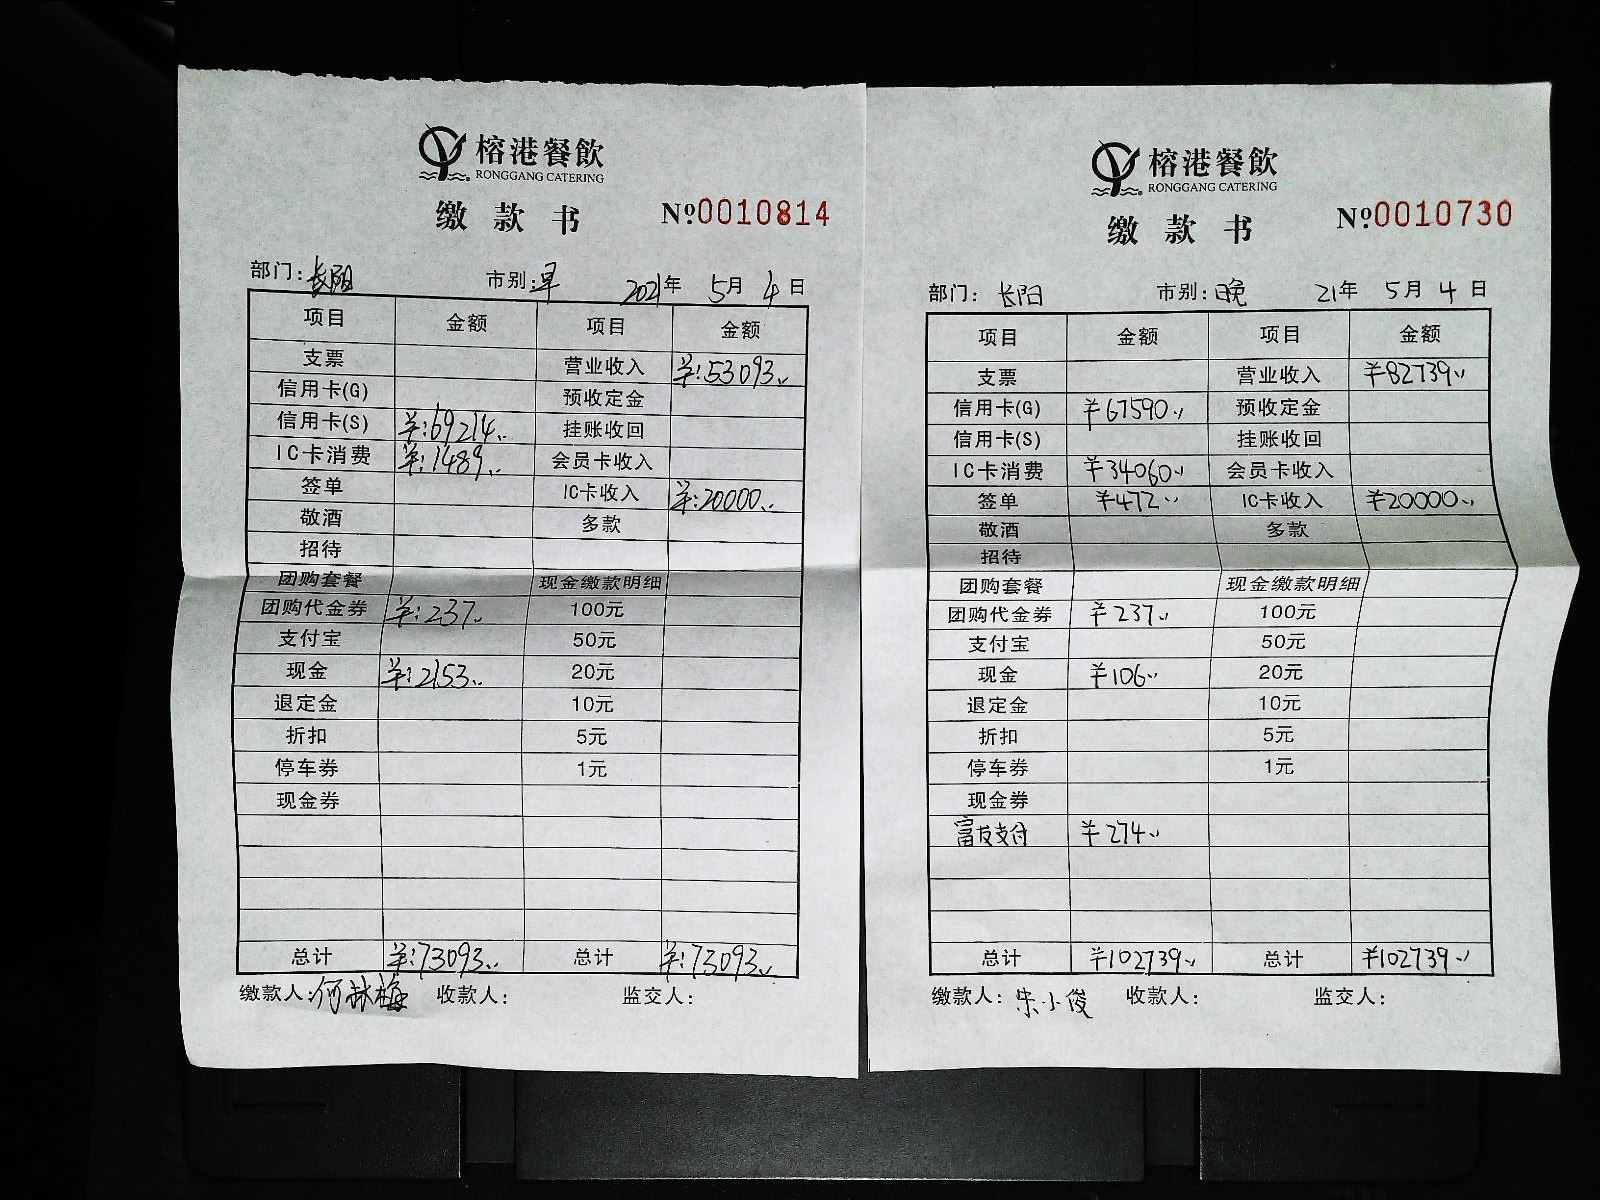 榕港餐飲
RONGGANG CATERING
缴款书 №0010814
部门:长阳 市别:早 2021年 5月 4日
项目 金额 项目 金额
支票 营业收入 ¥:53093..
信用卡(G) 预收定金
信用卡(S) ¥:69214.. 挂账收回
IC卡消费 ¥:1489.. 会员卡收入
签单 IC卡收入 ¥:20000..
敬酒 多款
招待
团购套餐 现金缴款明细
团购代金券 ¥:237.. 100元
支付宝 50元
现金 ¥:2153.. 20元
退定金 10元
折扣 5元
停车券 1元
现金券
总计 ¥:73093.. 总计 ¥:73093..
缴款人:何林梅 收款人: 监交人:
榕港餐飲
RONGGANG CATERING
缴款书 №0010730
部门: 长阳 市别:晚 21年 5月 4日
项目 金额 项目 金额
支票 营业收入 ¥82739..
信用卡(G) ¥67590.. 预收定金
信用卡(S) 挂账收回
IC卡消费 ¥34060.. 会员卡收入
签单 ¥472.. IC卡收入 ¥20000..
敬酒 多款
招待
团购套餐 现金缴款明细
团购代金券 ¥237.. 100元
支付宝 50元
现金 ¥106.. 20元
退定金 10元
折扣 5元
停车券 1元
现金券
富友支付 ¥274..
总计 ¥102739.. 总计 ¥102739..
缴款人: 朱小俊 收款人: 监交人: